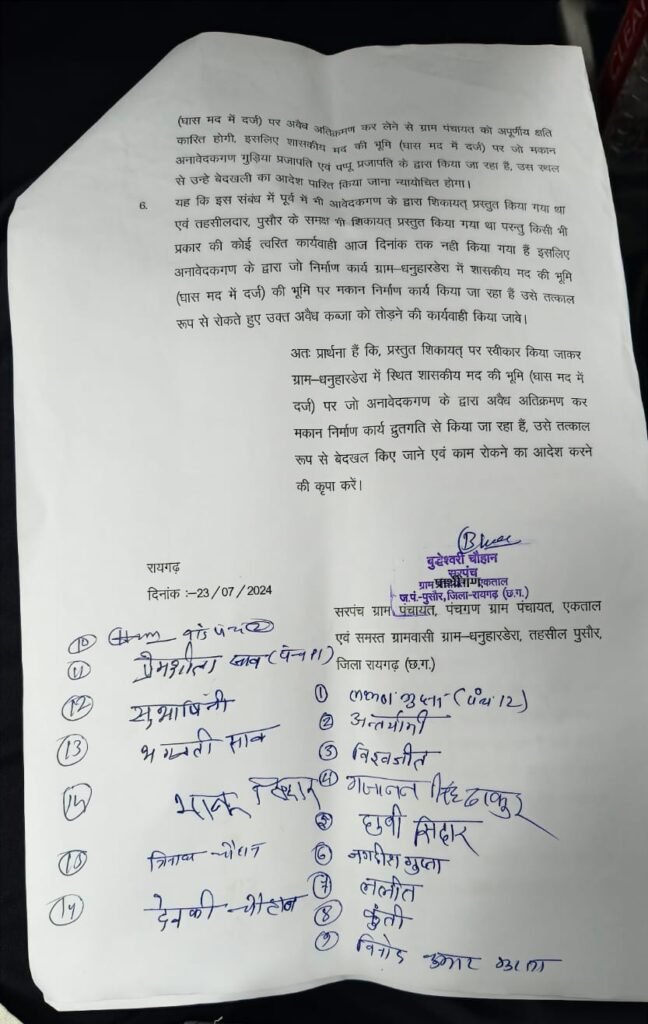 (घास मद में दर्ज) पर अवैध अतिक्रमण कर लेने से ग्राम पंचायत को अपूर्णीय क्षति
कारित होगी, इसलिए शासकीय मद की भूमि (घास मद में दर्ज) पर जो मकान
अनावेदकगण गुड़िया प्रजापति एवं पप्पू प्रजापति के द्वारा किया जा रहा है, उस स्थल
से उन्हे बेदखली का आदेश पारित किया जाना न्यायोचित होगा।
6. यह कि इस संबंध में पूर्व में भी आवेदकगण के द्वारा शिकायत् प्रस्तुत किया गया था
एवं तहसीलदार, पुसौर के समक्ष भी शिकायत् प्रस्तुत किया गया था परन्तु किसी भी
प्रकार की कोई त्वरित कार्यवाही आज दिनांक तक नही किया गया हैं इसलिए
अनावेदकगण के द्वारा जो निर्माण कार्य ग्राम–धनुहारडेरा में शासकीय मद की भूमि
(घास मद में दर्ज) की भूमि पर मकान निर्माण कार्य किया जा रहा है उसे तत्काल
रूप से रोकते हुए उक्त अवैध कब्जा को तोड़ने की कार्यवाही किया जावे।
अतः प्रार्थना हैं कि, प्रस्तुत शिकायत् पर स्वीकार किया जाकर
ग्राम–धनुहारडेरा में स्थित शासकीय मद की भूमि (घास मद में
दर्ज) पर जो अनावेदकगण के द्वारा अवैध अतिक्रमण कर
मकान निर्माण कार्य द्रुतगति से किया जा रहा हैं, उसे तत्काल
रूप से बेदखल किए जाने एवं काम रोकने का आदेश करने
की कृपा करें।
रायगढ़
दिनांक :–23/07/2024
बुद्धेश्वरी चौहान
सरपंच
प्रार्थीगण
ग्राम एकताल
ज.पं.-पुसौर, जिला-रायगढ़ (छ.ग.)
सरपंच ग्राम पंचायत, पंचगण ग्राम पंचायत, एकताल
एवं समस्त ग्रामवासी ग्राम–धनुहारडेरा, तहसील पुसौर,
जिला रायगढ़ (छ.ग.)
① गुप्ता (पंच 12)
② अन्तर्यामी
③ विश्वजीत
④ गजानन सिंह ठाकुर
⑤ सिदार
⑥ जगदीश गुप्ता
⑦ ललीत
⑧ कुंती
⑨ विनोद कुमार गुप्ता
⑩
⑪ प्रेमशीला साव (पंच 11)
⑫ सुभाषिनी
⑬ भगवती साव
⑭
चौहान
देवकी चौहान